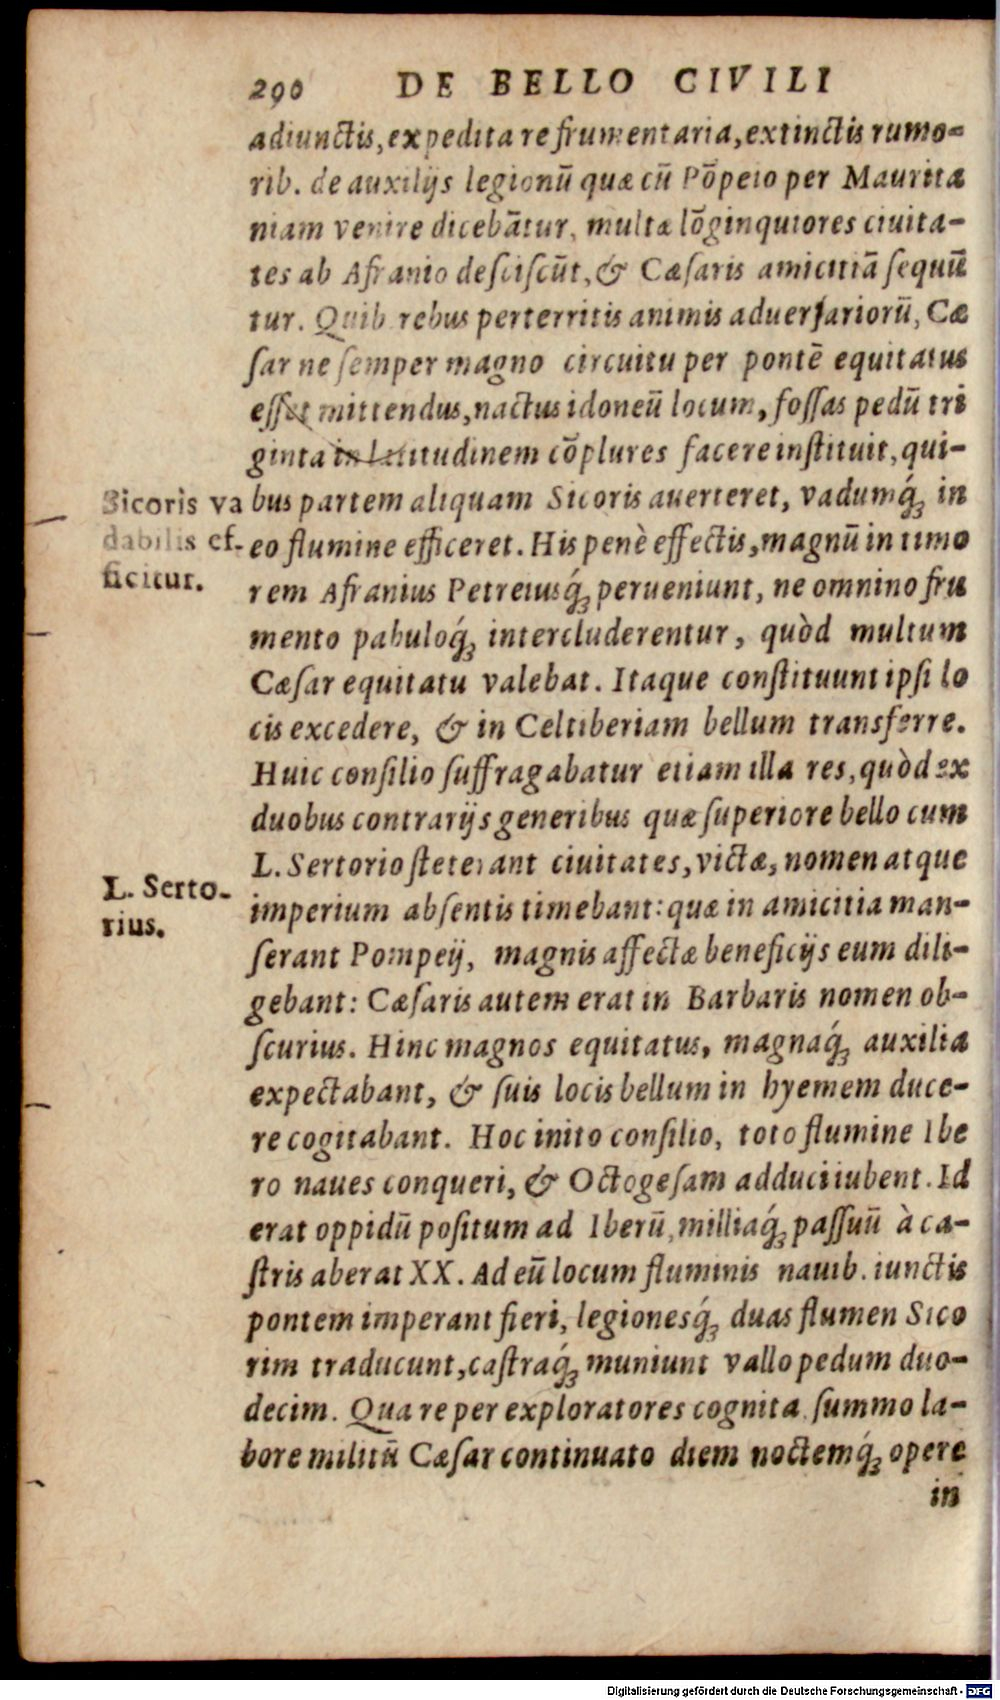 290 DE BELLO CIVILI
adiunctis, expedita re frumentaria, extinctis rumo-
rib. de auxilijs legionū quæ cū Pōpeio per Maurita
niam venire dicebātur, multæ lōginquiores ciuita-
tes ab Afranio desciscūt, & Cæsaris amicitiā sequū
tur. Quib. rebus perterritis animis aduersariorū, Cæ
sar ne semper magno circuitu per pontē equitatus
esset mittendus, nactus idoneū locum, fossas pedū tri
ginta in latitudinem cōplures facere instituit, qui-
bus partem aliquam Sicoris auerteret, vadumq́ꝫ in
eo flumine efficeret. His penè effectis, magnū in timo
rem Afranius Petreiusq́ꝫ perueniunt, ne omnino fru
mento pabuloq́ꝫ intercluderentur, quòd multum
Cæsar equitatu valebat. Itaque constituunt ipsi lo
cis excedere, & in Celtiberiam bellum transferre.
Huic consilio suffragabatur etiam illa res, quòd ex
duobus contrarijs generibus quæ superiore bello cum
L. Sertorio steterant ciuitates, victæ, nomen atque
imperium absentis timebant: quæ in amicitia man-
serant Pompeij, magnis affectæ beneficijs eum dili-
gebant: Cæsaris autem erat in Barbaris nomen ob-
scurius. Hinc magnos equitatus, magnaq́ꝫ auxilia
expectabant, & suis locis bellum in hyemem duce-
re cogitabant. Hoc inito consilio, toto flumine Ibe
ro naues conqueri, & Octogesam adduci iubent. Id
erat oppidū positum ad Iberū, milliaq́ꝫ passuū à ca-
stris aberat XX. Ad eū locum fluminis nauib. iunctis
pontem imperant fieri, legionesq́ꝫ duas flumen Sico
rim traducunt, castraq́ꝫ muniunt vallo pedum duo-
decim. Qua re per exploratores cognita summo la-
bore militū Cæsar continuato diem noctemq́ꝫ opere
in
Sicoris va
dabilis ef-
ficitur.
L. Serto-
rius.
Digitalisierung gefördert durch die Deutsche Forschungsgemeinschaft - DFG